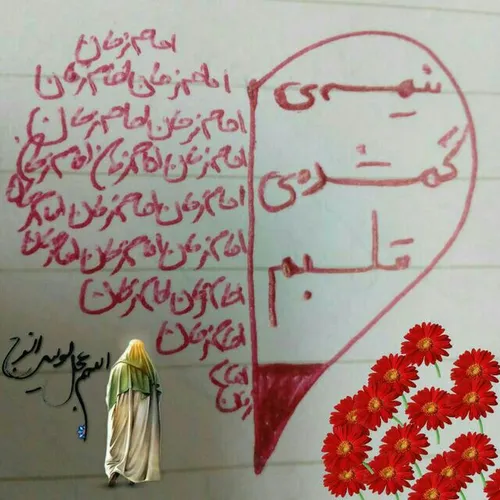 امام زمان
امام زمان امام زمان
امام زمان امام زمان
امام زمان امام زمان امام زمان
امام زمان امام زمان امام
امام زمان امام زمان امام زمان
امام زمان امام زمان
امام زمان
امام
زمان
نیمه‌ی
گمشده‌ی
قلبم
اللهم عجل لولیک الفرج